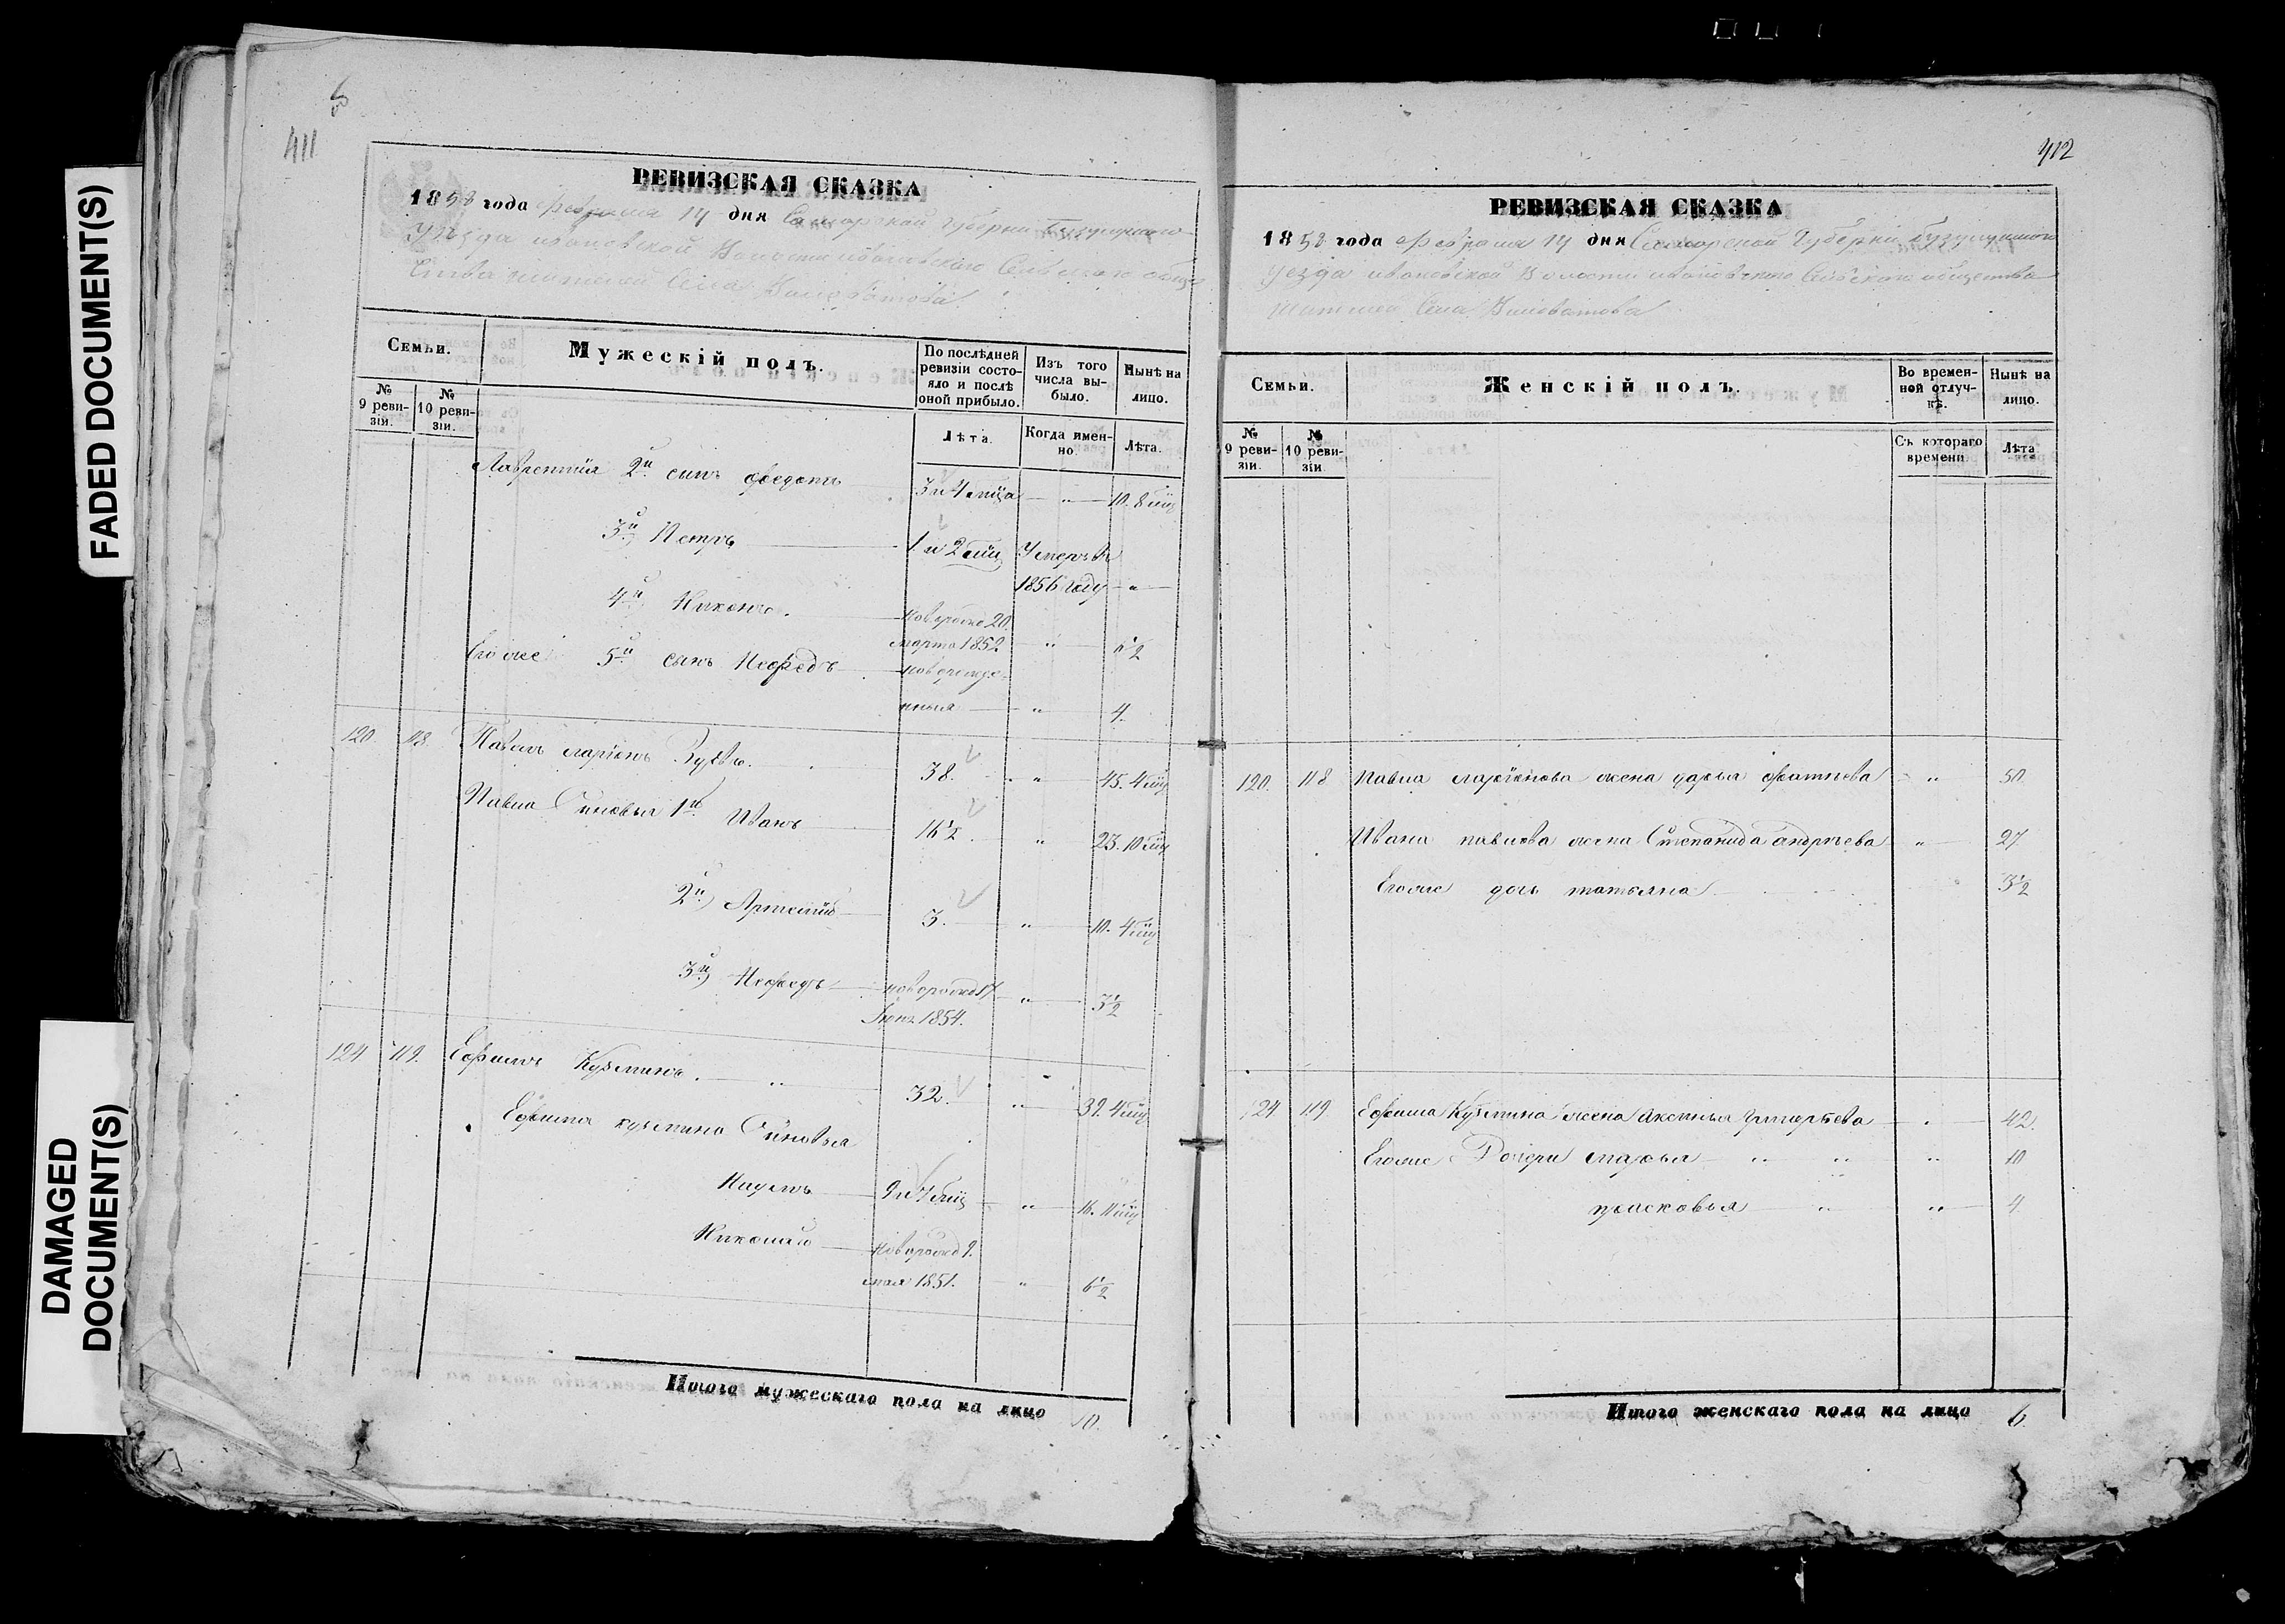 FADED DOCUMENT(S)
DAMAGED
DOCUMENT(S)
411
РЕВИЗСКАЯ СКАЗКА
1858 года февраля 14 дня Самарской губерни Бузулукского
Уѣзда ивановской Волости ивановского Сельского обще
ства жителей Села
Семьи.
Мужескій полъ.
По послѣдней ревизіи состояло и послѣ оной прибыло.
Изъ того числа выбыло.
Нынѣ на лицо.
№ 9 ревизіи.
№ 10 ревизіи.
Лѣта.
Когда именно.
Лѣта.
Лаврентія 2й сынъ федотъ 3 и 4 мца " 10. 8 мц
3й Петръ 1 и 2 мц Умеръ въ
1856 году "
4й Никонъ. новорожд 20.
марта 1852 " 6½
Его же 5й сынъ Нефедъ новорожде-
нныя " 4.
120 118 Павелъ ларіонъ Зуевъ. 38. " 45. 4 мц
Павла Синовья 1й Иванъ 16½. " 23. 10 мц
2й) Артемій 3. " 10. 4 мц
3й) Нефедъ новорожд 17
1854. " 3½
124 119. Ефимъ Кузминъ. " 32. " 39. 4 мц
Ефима кузмина Синовья
9 и 7 мц " 16. 11 мц
Николай новорожд 9.
мая 1851. " 6½
Итого мужескаго пола на лицо 10.
412
РЕВИЗСКАЯ СКАЗКА
1858 года февраля 14 дня Самарской Губерніи Бузулукского
уезда ивановской Волости ивановского Сельского общества
жителей Села
Семьи.
Женскій полъ.
Во временной отлучкѣ.
Нынѣ на лицо.
№ 9 ревизіи.
№ 10 ревизіи.
Съ котораго времени.
Лѣта
120. 118 Павла ларіонова жена дарья " 50.
Ивана павлова жена Степанида андреева " 27
Его же дочь татьяна 3½
124 119 Ефима Кузмина жена Аксинья григорьева 42.
Его же Дочери марья " " " 10
прасковья " " 4
Итого женскаго пола на лицо 6.